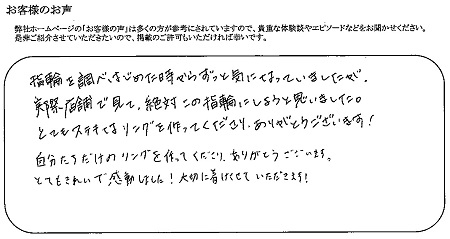 お客様のお声
弊社ホームページの「お客様の声」は多くの方が参考にされていますので、貴重な体験談やエピソードなどをお聞かせください。
是非ご紹介させていただきたいので、掲載のご許可もいただければ幸いです。
指輪を調べはじめた時からずっと気になっていましたが、
実際店舗で見て、絶対この指輪にしようと思いました。
とてもステキなリングを作ってくださり、ありがとうございます!
自分たちだけのリングを作ってくださり、ありがとうございます。
とてもきれいで感動しました!大切に着けさせていただきます!